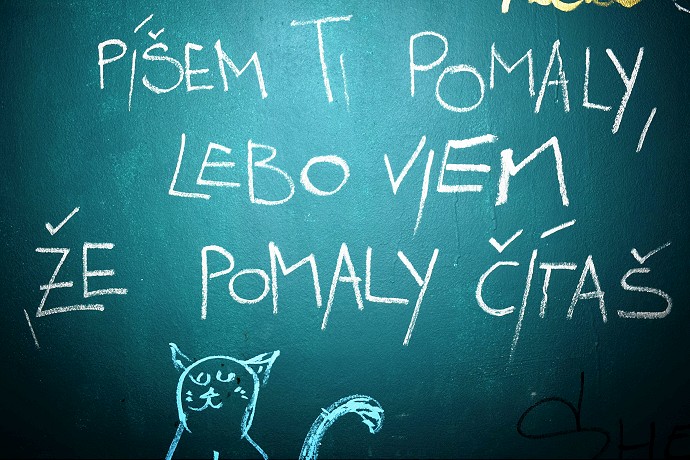 PÍŠEM TI POMALY,
LEBO VIEM
, ŽE POMALY ČÍTAŠ
SHE